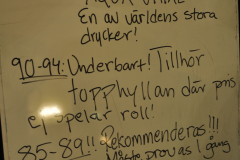 En av världens stora
drycker!
90-94: Underbart! Tillhör
topphyllan där pris
ej spelar roll!
85-89!! Rekommenderas!!!
Måste provas 1 gång